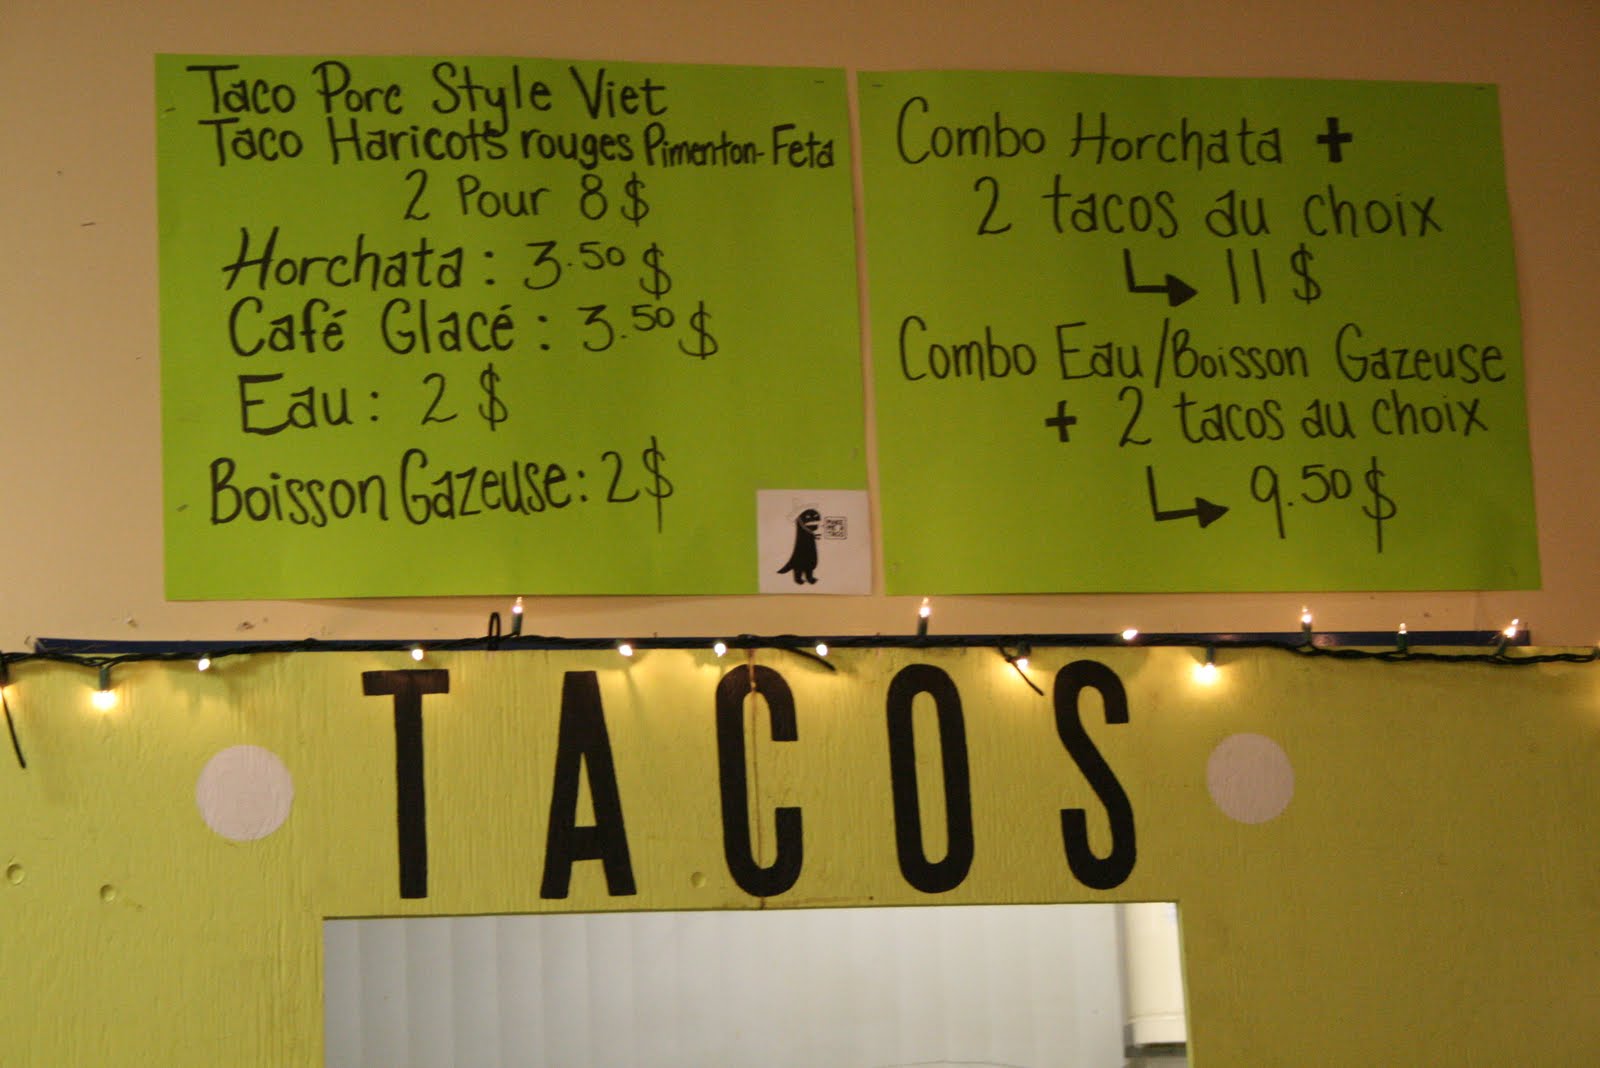 Taco Porc Style Viet
Taco Haricots rouges Pimenton-Feta
2 Pour 8$
Horchata : 3.50 $
Café Glacé : 3.50 $
Eau : 2 $
Boisson Gazeuse : 2 $
MAKE
ME A
TACO
Combo Horchata +
2 tacos au choix
11 $
Combo Eau/Boisson Gazeuse
+ 2 tacos au choix
9.50 $
TACOS